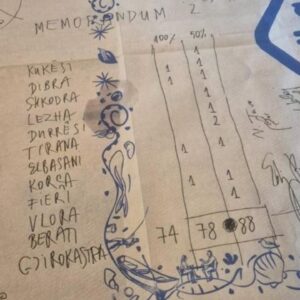 MEMORANDUM 2
100% 50%
KUKËSI
DIBRA
SHKODRA
LEZHA
DURRËSI
TIRANA
ELBASANI
KORÇA
FIERI
VLORA
BERATI
GJIROKASTRA
1
1
1
1
1
1
2
1
1
1
1
74 78 88